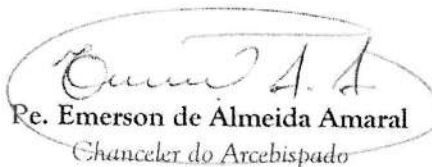 Pe. Emerson de Almeida Amaral
Chanceler do Arcebispado